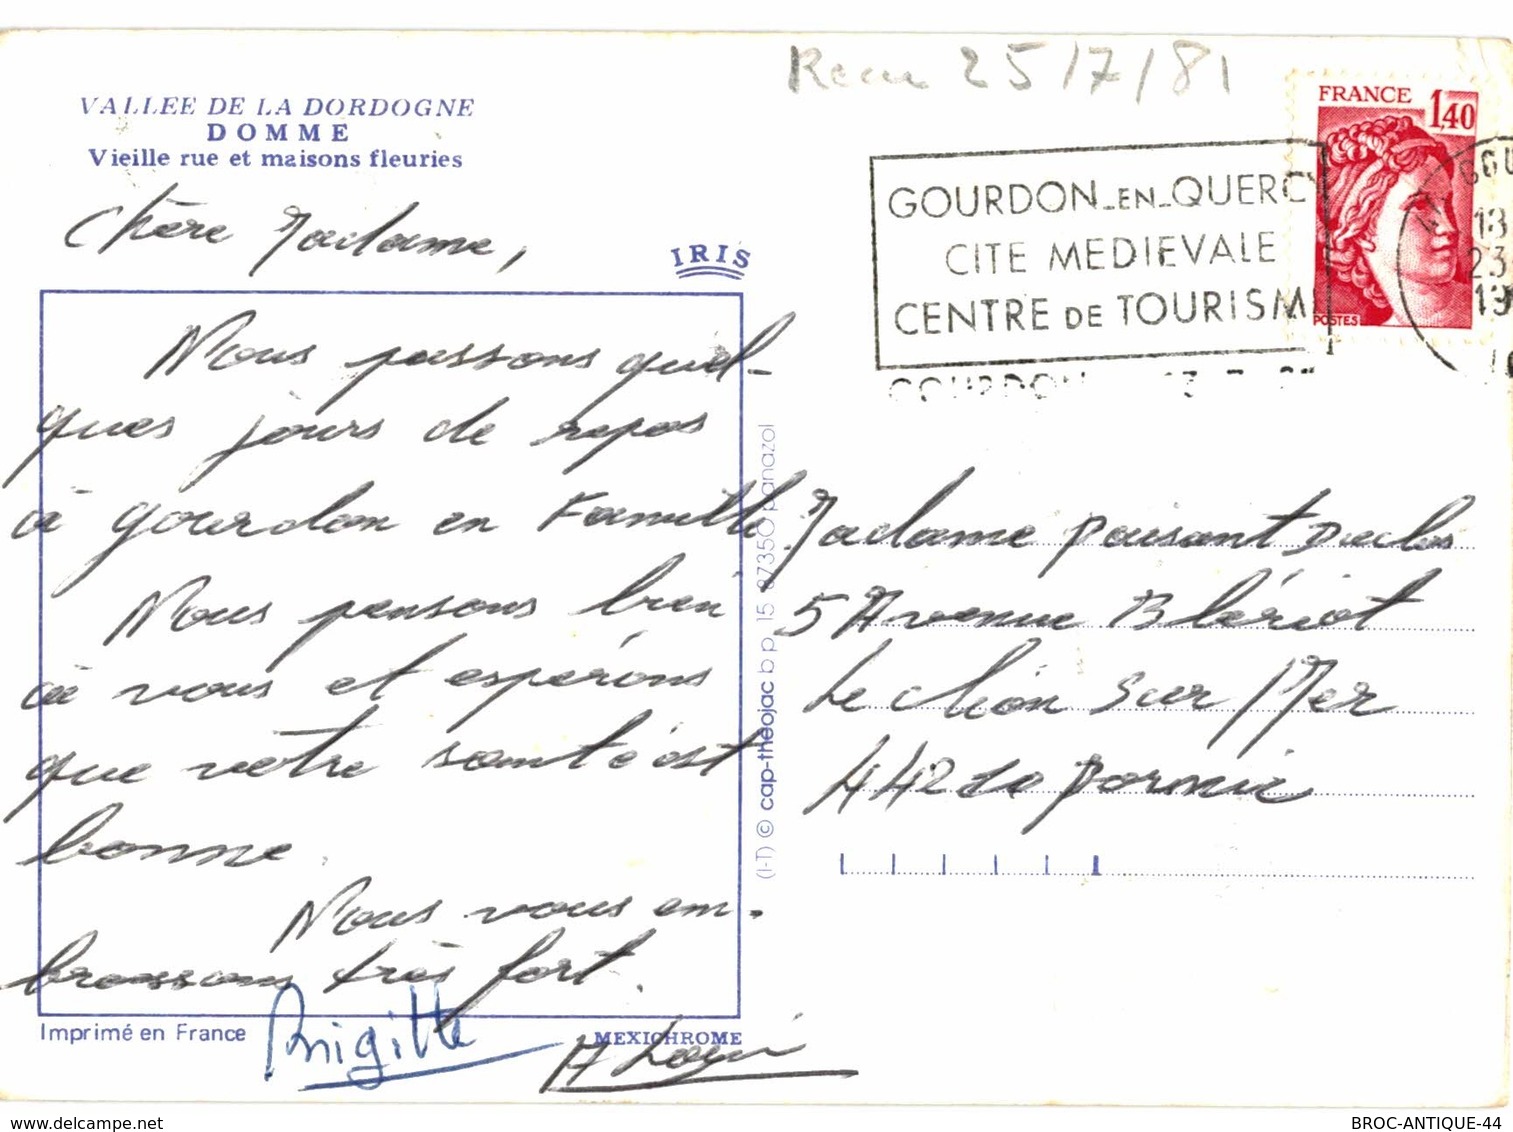 Recu 25/7/81
VALLEE DE LA DORDOGNE
DOMME
Vieille rue et maisons fleuries
FRANCE 1,40
POSTES
GOURDON-EN-QUERCY
CITE MEDIEVALE
CENTRE DE TOURISM
GOU
18
23
19
IRIS
Chère Madame,
Nous passons quel-
ques jours de repos
à Gourdon en Famille
Nous pensons bien
à vous et espérons
que votre santé est
bonne.
Nous vous em-
brassons très fort.
Brigitte
Madame Paisant Duclos
5 Avenue Blériot
Le Clion Sur Mer
44210 Pornic
(I-T) © cap-théojac b p 15 87350 panazol
Imprimé en France
MEXICHROME
www.delcampe.net
BROC-ANTIQUE-44